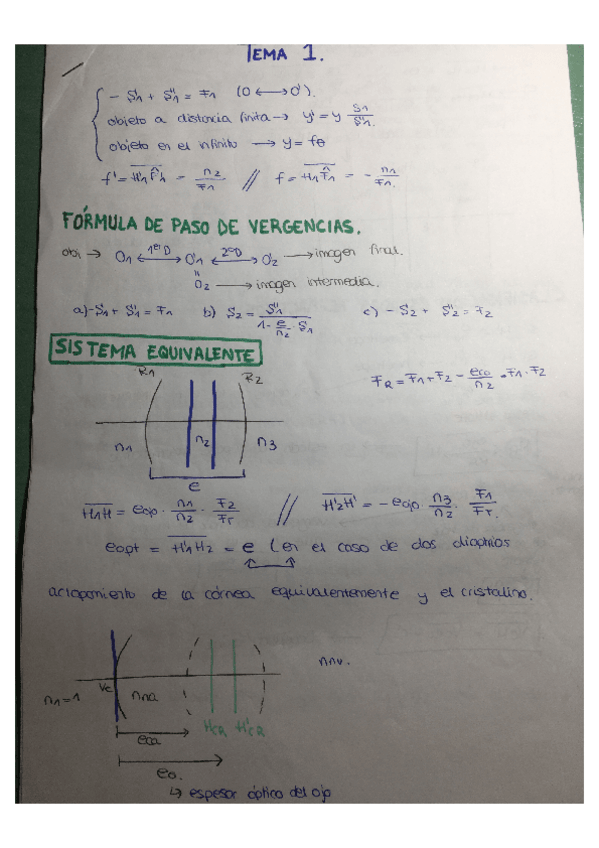 TEMA 1.
- S₁ + S'₁ = F₁ (O ⟷ O').
objeto a distancia finita → y' = y S₁/S'₁.
objeto en el infinito → y = fθ
f' = H'₁F'₁ = n₂/F₁ // f = H₁F₁ = - n₁/F₁.
FÓRMULA DE PASO DE VERGENCIAS.
obj → O₁ ⟷ 1er D O'₁ ⟷ 2º D O'₂ → imagen final.
"
O₂ → imagen intermedia.
a) -S₁ + S'₁ = F₁ b) S₂ = S'₁ / 1 - e/n₂ · S'₁ c) - S₂ + S'₂ = F₂
SISTEMA EQUIVALENTE
R₁ R₂ F_R = F₁ + F₂ - eca/n₂ · F₁ · F₂
n₁ n₂ n₃
e
H₁H = eojo · n₁/n₂ · F₂/Fr // H'₂H' = - eojo n₃/n₂ · F₁/Fr.
eopt = H'₁H₂ = e (en el caso de dos dioptrios
acloponiento de la córnea equivalentemente y el cristalino.
nhv.
n₁=1 Vc nha HcR H'cR
eca
eo.
↳ espesor óptico del ojo